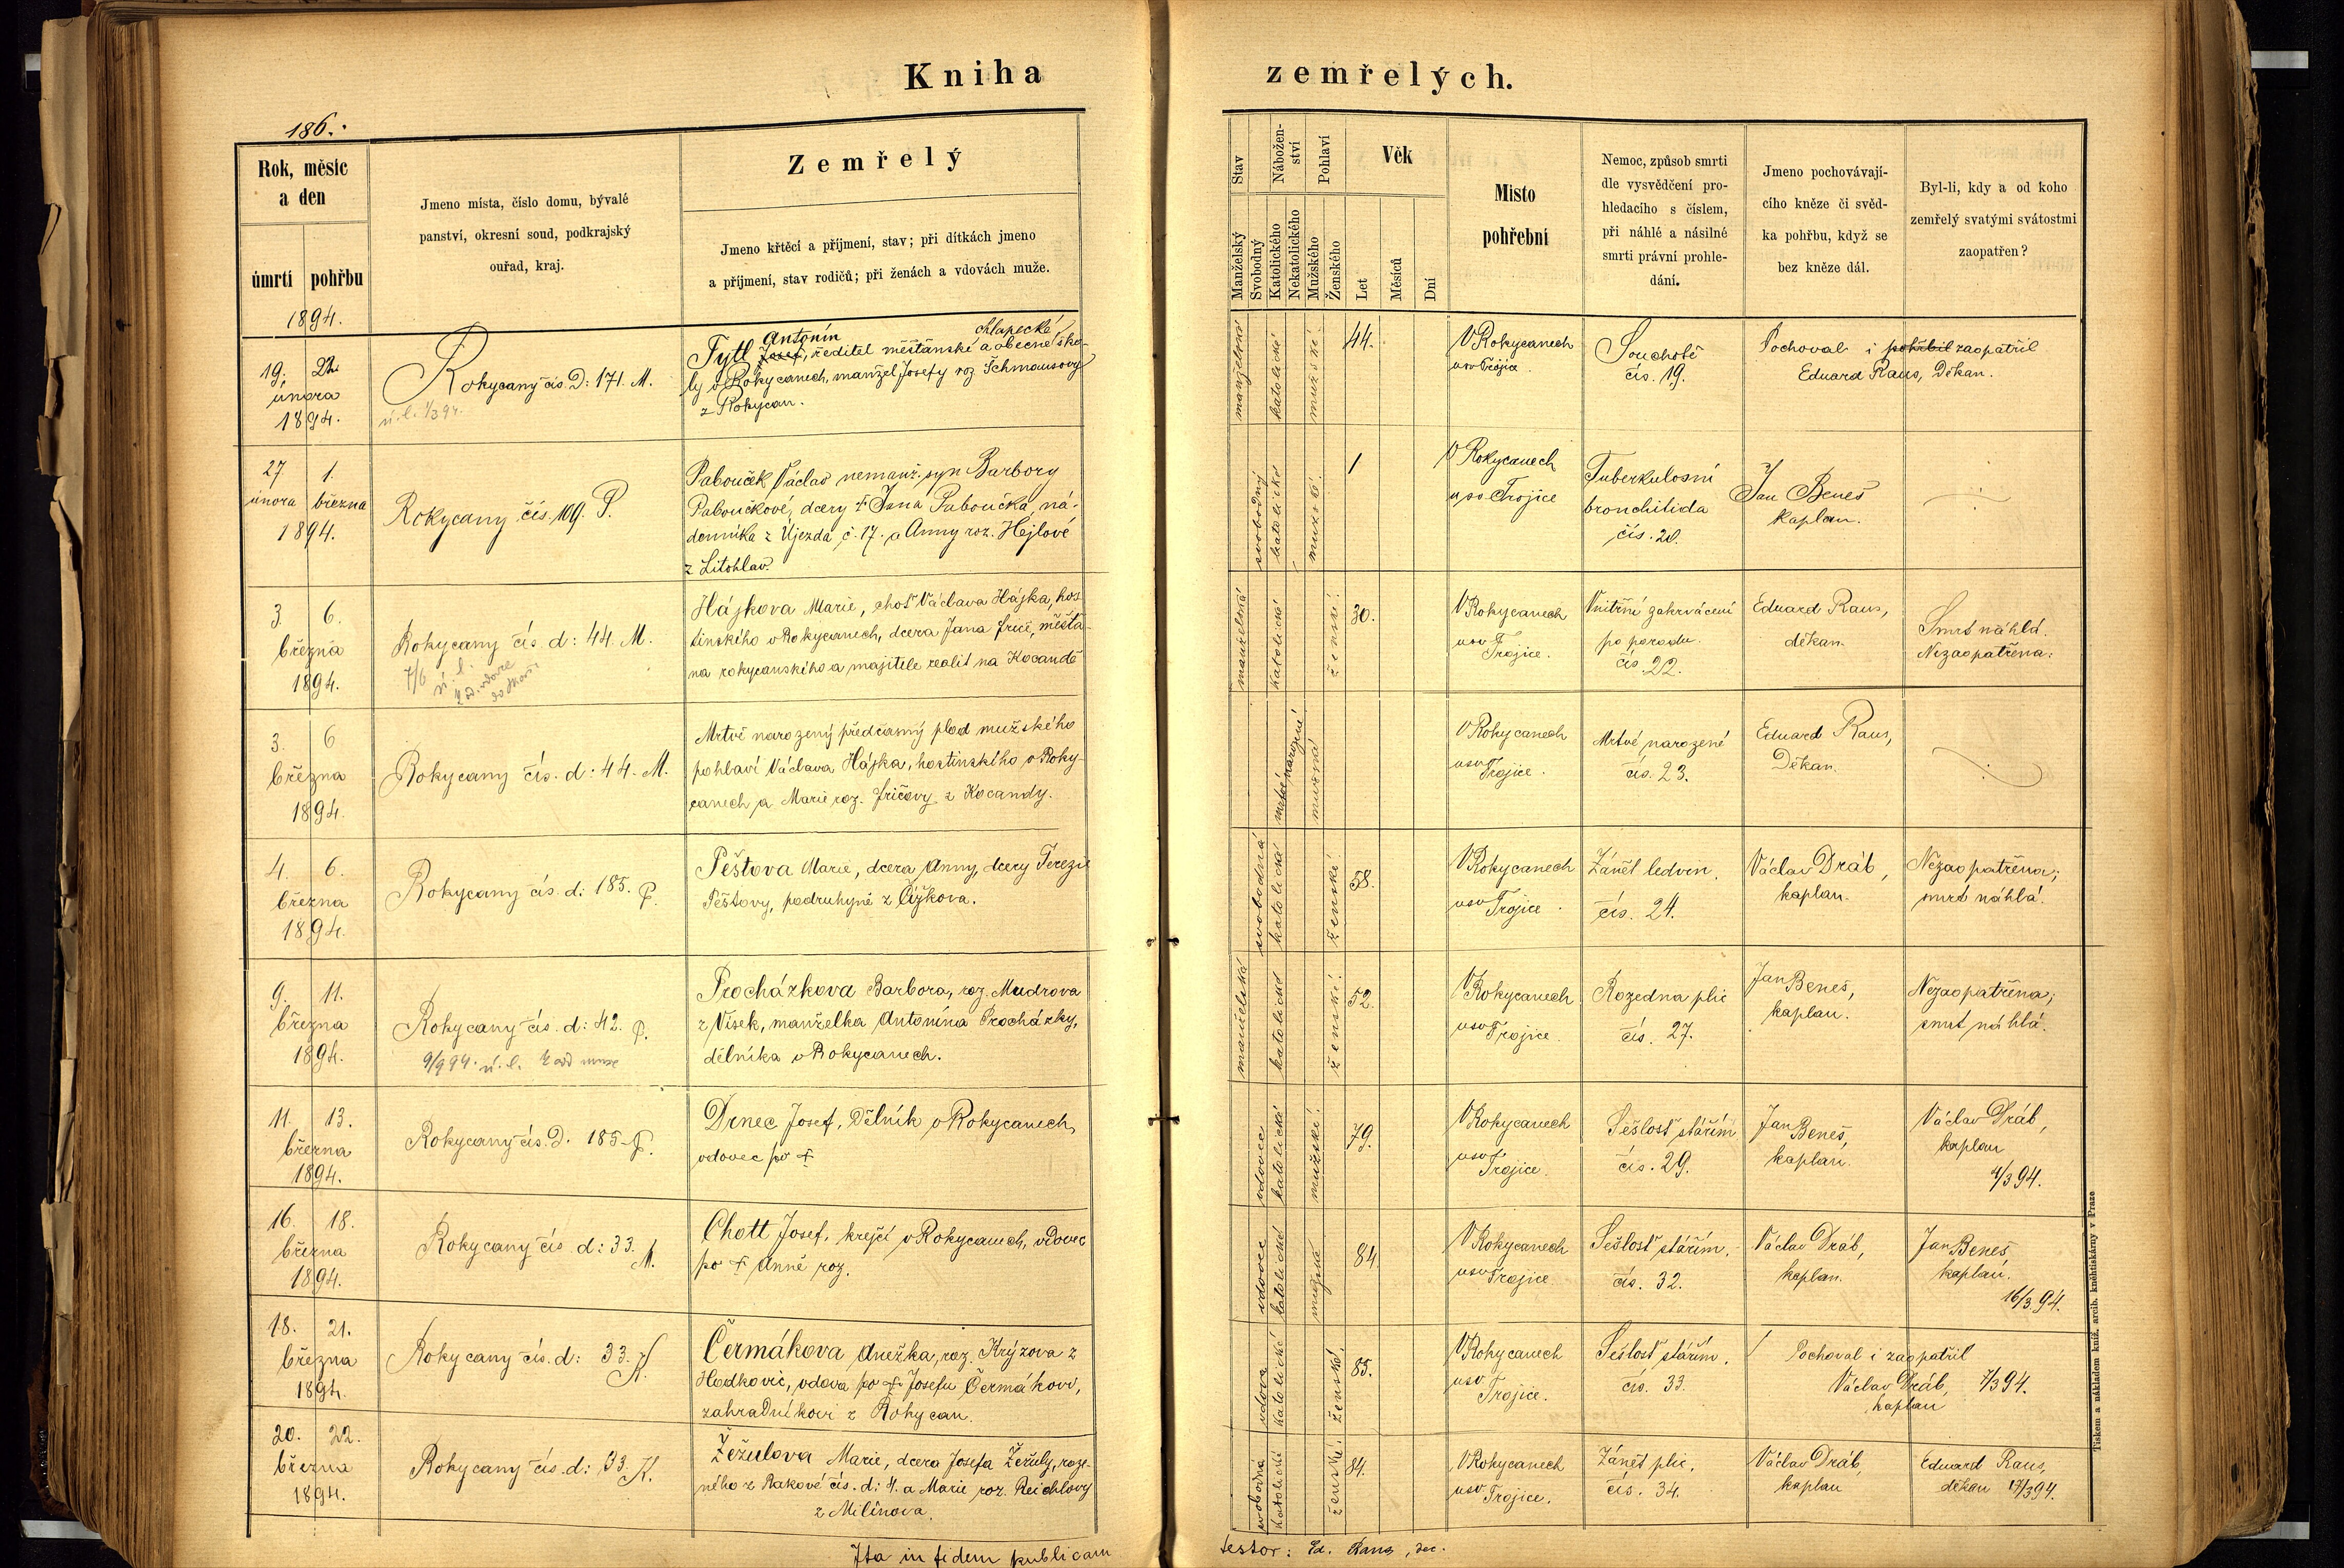 Kniha
zemřelých.
186.
Rok, měsíc
a den
úmrtí pohřbu
1894.
Jmeno místa, číslo domu, bývalé
panství, okresní soud, podkrajský
ouřad, kraj.
Zemřelý
Jmeno křtěcí a příjmení, stav; při dítkách jmeno
a příjmení, stav rodičů; při ženách a vdovách muže.
Stav
Manželský
Svobodný
Nábožen-
ství
Katolického
Nekatolického
Pohlaví
Mužského
Ženského
Věk
Let
Měsíců
Dní
Misto
pohřební
Nemoc, způsob smrti
dle vysvědčení pro-
hledacího s číslem,
při náhlé a násilné
smrti právní prohle-
dání.
Jmeno pochovávají-
cího kněze či svěd-
ka pohřbu, když se
bez kněze dál.
Byl-li, kdy a od koho
zemřelý svatými svátostmi
zaopatřen?
19. 22.
února
1894.
Rokycany čís. D: 171. M.
ú. l. 1/3 94.
Antonín chlapecké
Tytl Josef, ředitel měšťanské a obecné ško-
ly v Rokycanech, manžel Josefy roz Schmausovy
z Rokycan.
manželský
katolické
mužské.
44.
V Rokycanech
u sv Trojice.
Souchotě
čís. 19.
Pochoval i pohřbil zaopatřil
Eduard Raus, Děkan.
27 1.
února března
1894.
Rokycany čís. 109. P.
Pabouček Václav nemanž. syn Barbory
Paboučkové, dcery † Jana Paboučka, ná-
denníka z Újezda č. 17. a Anny roz. Hejlové
z Litohlav.
svobodný
katolické
mužské.
1
V Rokycanech
u sv Trojice
Tuberkulosní
bronchitida
čís. 20.
Jan Beneš
kaplan.
3. 6.
března
1894.
Rokycany čís d: 44. M.
7/6 ú. l.
Hájkova Marie, choť Václava Hájka, hos
tinského v Rokycanech, dcera Jana Friče, měšťa-
na rokycanského a majitele realit na Kocandě
manželská
katolické
ženské.
30.
V Rokycanech
u sv Trojice.
Vnitřní zakrvácení
po porodu.
čís. 22.
Eduard Raus,
děkan.
Smrt náhlá.
Nezaopatřena.
3. 6
března
1894.
Rokycany čís. d: 44. M.
Mrtvě narozený předčasný plod mužského
pohlaví Václava Hájka, hostinského v Roky-
canech a Marie roz. Fričovy z Kocandy.
mrtvě narozené
mužská
V Rokycanech
u sv Trojice.
Mrtvě narozené
čís. 23.
Eduard Raus,
Děkan.
4. 6.
března
1894.
Rokycany čís. d: 185. P.
Peštova Marie, dcera Anny, dcery Terezie
Peštovy, podruhyně z Čížkova.
svobodná
katolické
ženské.
58.
V Rokycanech
u sv Trojice.
Zánět ledvin.
čís. 24.
Václav Dráb,
kaplan.
Nezaopatřena;
smrt náhlá.
9. 11.
března
1894.
Rokycany čís. d: 42. P.
9/9 94. ú. l.
Procházkova Barbora, roz. Mudrova
z Vísek, manželka Antonína Procházky,
dělníka v Rokycanech.
manželská
katolické
ženské.
52.
V Rokycanech
u sv Trojice.
Rozedna plic
čís. 27.
Jan Beneš,
kaplan.
Nezaopatřena;
smrt náhlá.
11. 13.
března
1894.
Rokycany čís. D. 185. P.
Drnec Josef, Dělník v Rokycanech,
vdovec po †
vdovec
katolické
mužské.
79.
V Rokycanech
u sv Trojice.
Sešlosť stářím
čís. 29.
Jan Beneš,
kaplan.
Václav Dráb,
kaplan
4/3 94.
16. 18.
března
1894.
Rokycany čís d: 33. M.
Chott Josef, krejčí v Rokycanech, vdovec
po † Anně roz.
vdovec
katolické
84.
V Rokycanech
u sv Trojice.
Sešlosť stářím.
čís. 32.
Václav Dráb,
kaplan.
Jan Beneš
kaplan.
16/3. 94.
18. 21.
března
1894.
Rokycany čís. d: 33. K.
Čermákova Anežka, roz. Krýzova z
Hodkovic, vdova po † Josefu Čermákovi,
zahradníkovi z Rokycan.
vdova
katolické
ženské.
85.
V Rokycanech
u sv Trojice.
Sešlosť stářím.
čís. 33.
Pochoval i zaopatřil
Václav Dráb, 7/3 94.
kaplan
20. 22.
března
1894.
Rokycany čís. d: 33. K.
Žežulova Marie, dcera Josefa Žežuly, roze-
ného z Rakové čís. d: 4. a Marie roz. Reichlovy
z Milínova.
svobodná
katolické
ženské.
84.
V Rokycanech
u sv Trojice.
Zánět plic.
čís. 34.
Václav Dráb,
kaplan
Eduard Raus,
děkan 17/3 94.
Ita in fidem publicam
testor: Ed. Raus, dec.
Tiskem a nákladem kníž. arcib. knihtiskárny v Praze